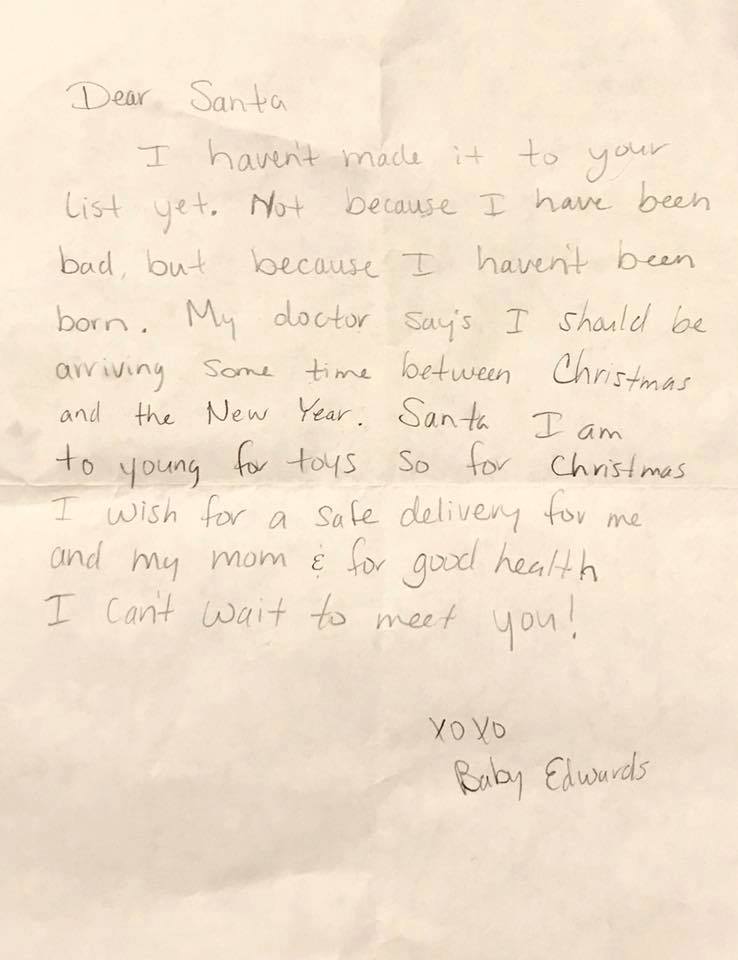 Dear Santa
I haven't made it to your
list yet. Not because I have been
bad, but because I haven't been
born. My doctor say's I should be
arriving some time between Christmas
and the New Year. Santa I am
to young for toys so for Christmas
I wish for a safe delivery for me
and my mom & for good health
I can't wait to meet you!
XOXO
Baby Edwards